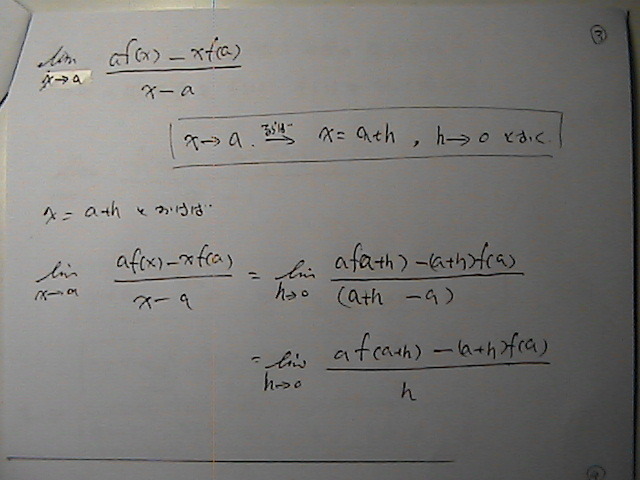 ③
lim x→a (af(x) − xf(a)) / (x − a)
x→a ならば ⟶ x = a+h , h→0 とおく
x = a+h とおけば
lim x→a (af(x) − xf(a)) / (x − a) = lim h→0 (af(a+h) − (a+h)f(a)) / (a+h − a)
= lim h→0 (af(a+h) − (a+h)f(a)) / h